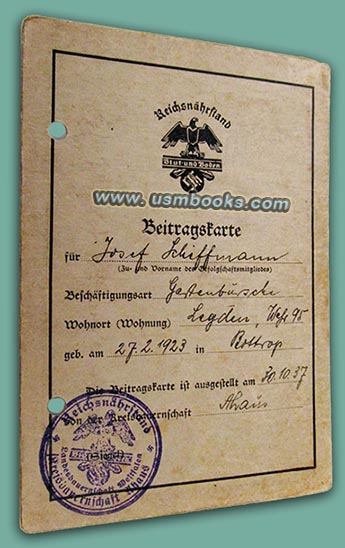 Reichsnährstand
Blut und Boden
www.usmbooks.com
Beitragskarte
für Josef Schiffmann
(Zu- und Vorname des Gefolgschaftsmitgliedes)
Beschäftigungsart Gartenbursche
Wohnort (Wohnung) Legden, Wehr 95
geb. am 27.2.1923 in Bottrop
Die Beitragskarte ist ausgestellt am 30.10.37
von der Kreisbauernschaft Ahaus
Reichsnährstand
Landesbauernschaft Westfalen
(Siegel)
Kreisbauernschaft Ahaus